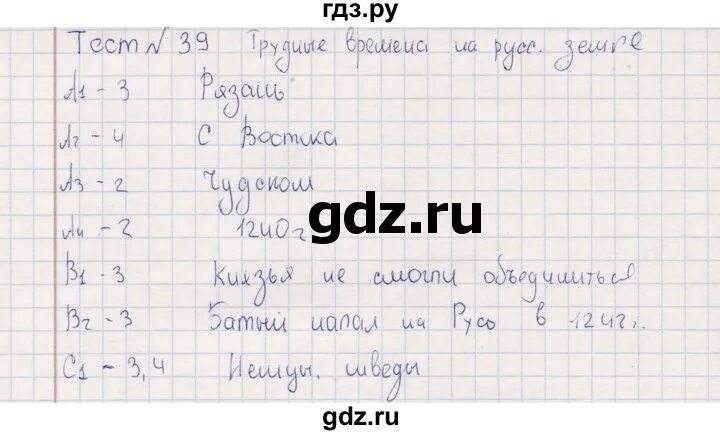 гдз.ру
Тест № 39 Трудные времена на русс. земле
А1 - 3 Рязань
А2 - 4 С Востока
А3 - 2 Чудском
gdz.ru
А4 - 2 1240 г
В1 - 3 Князья не смогли объединиться
В2 - 3 Батый напал на Русь в 124г.
С1 - 3,4 Немцы. шведы
gdz.ru